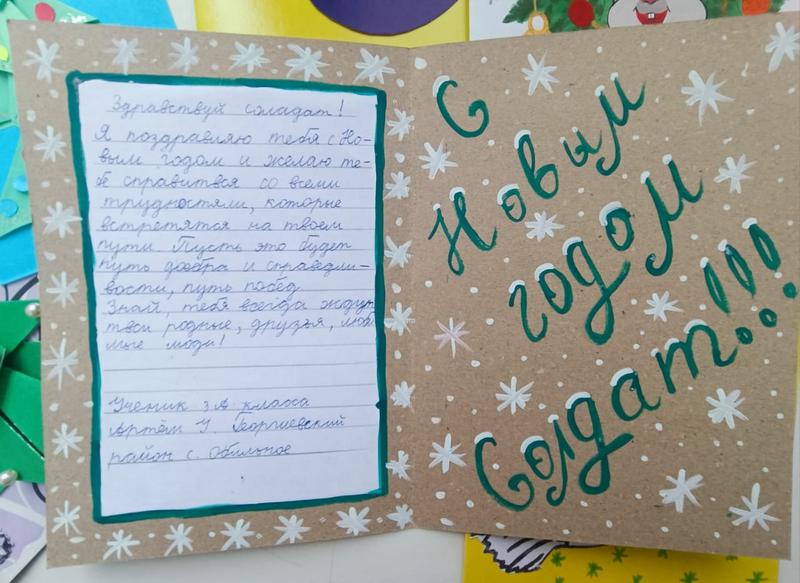 Здравствуй соладат!
Я поздравляю тебя с Но-
вым годом и желаю те-
бе справится со всеми
трудностями, которые
встретятся на твоем
пути. Пусть это будет
путь добра и справедли-
вости, путь побед
Знай, тебя всегда ждут
твои родные, друзья, люби
мые люди!
Ученик 3 А класса
Артём У. Георгиевский
район с. Обильное
С
Новым
годом
Солдат!!!